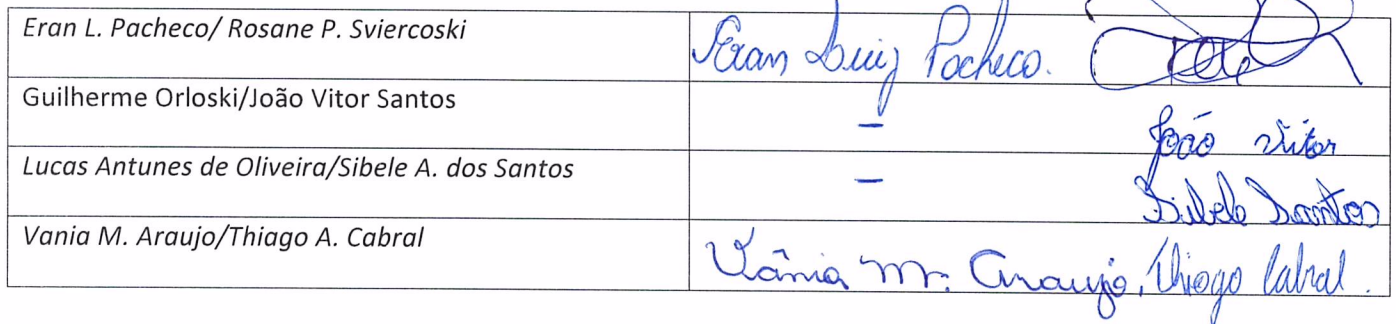 Eran L. Pacheco/ Rosane P. Sviercoski Eran Luiz Pacheco.
Guilherme Orloski/João Vitor Santos – João Vitor
Lucas Antunes de Oliveira/Sibele A. dos Santos – Sibele Santos
Vania M. Araujo/Thiago A. Cabral Vânia M. Araujo, Thiago Cabral.